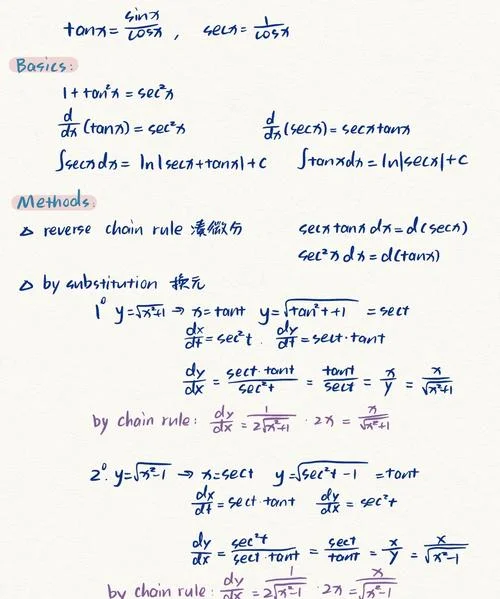 tanx = sinx/cosx , secx = 1/cosx
Basics:
1 + tan²x = sec²x
d/dx (tanx) = sec²x d/dx (secx) = secxtanx
∫secxdx = ln|secx+tanx|+C ∫tanxdx = ln|secx|+C
Methods:
△ reverse chain rule 湊微分 secxtanxdx = d(secx)
sec²xdx = d(tanx)
△ by substitution 換元
1° y=√x²+1 → x=tant y=√tan²t+1 = sect
dx/dt = sec²t . dy/dt = sect·tant
dy/dx = sect·tant/sec²t = tant/sect = x/y = x/√x²+1
by chain rule: dy/dx = 1/2√x²+1 · 2x = x/√x²+1
2°. y=√x²-1 → x=sect y=√sec²t-1 = tant
dx/dt = sect·tant dy/dx = sec²t
dy/dx = sec²t/sect·tant = sect/tant = x/y = x/√x²-1
by chain rule: dy/dx = 1/2√x²-1 · 2x = x/√x²-1